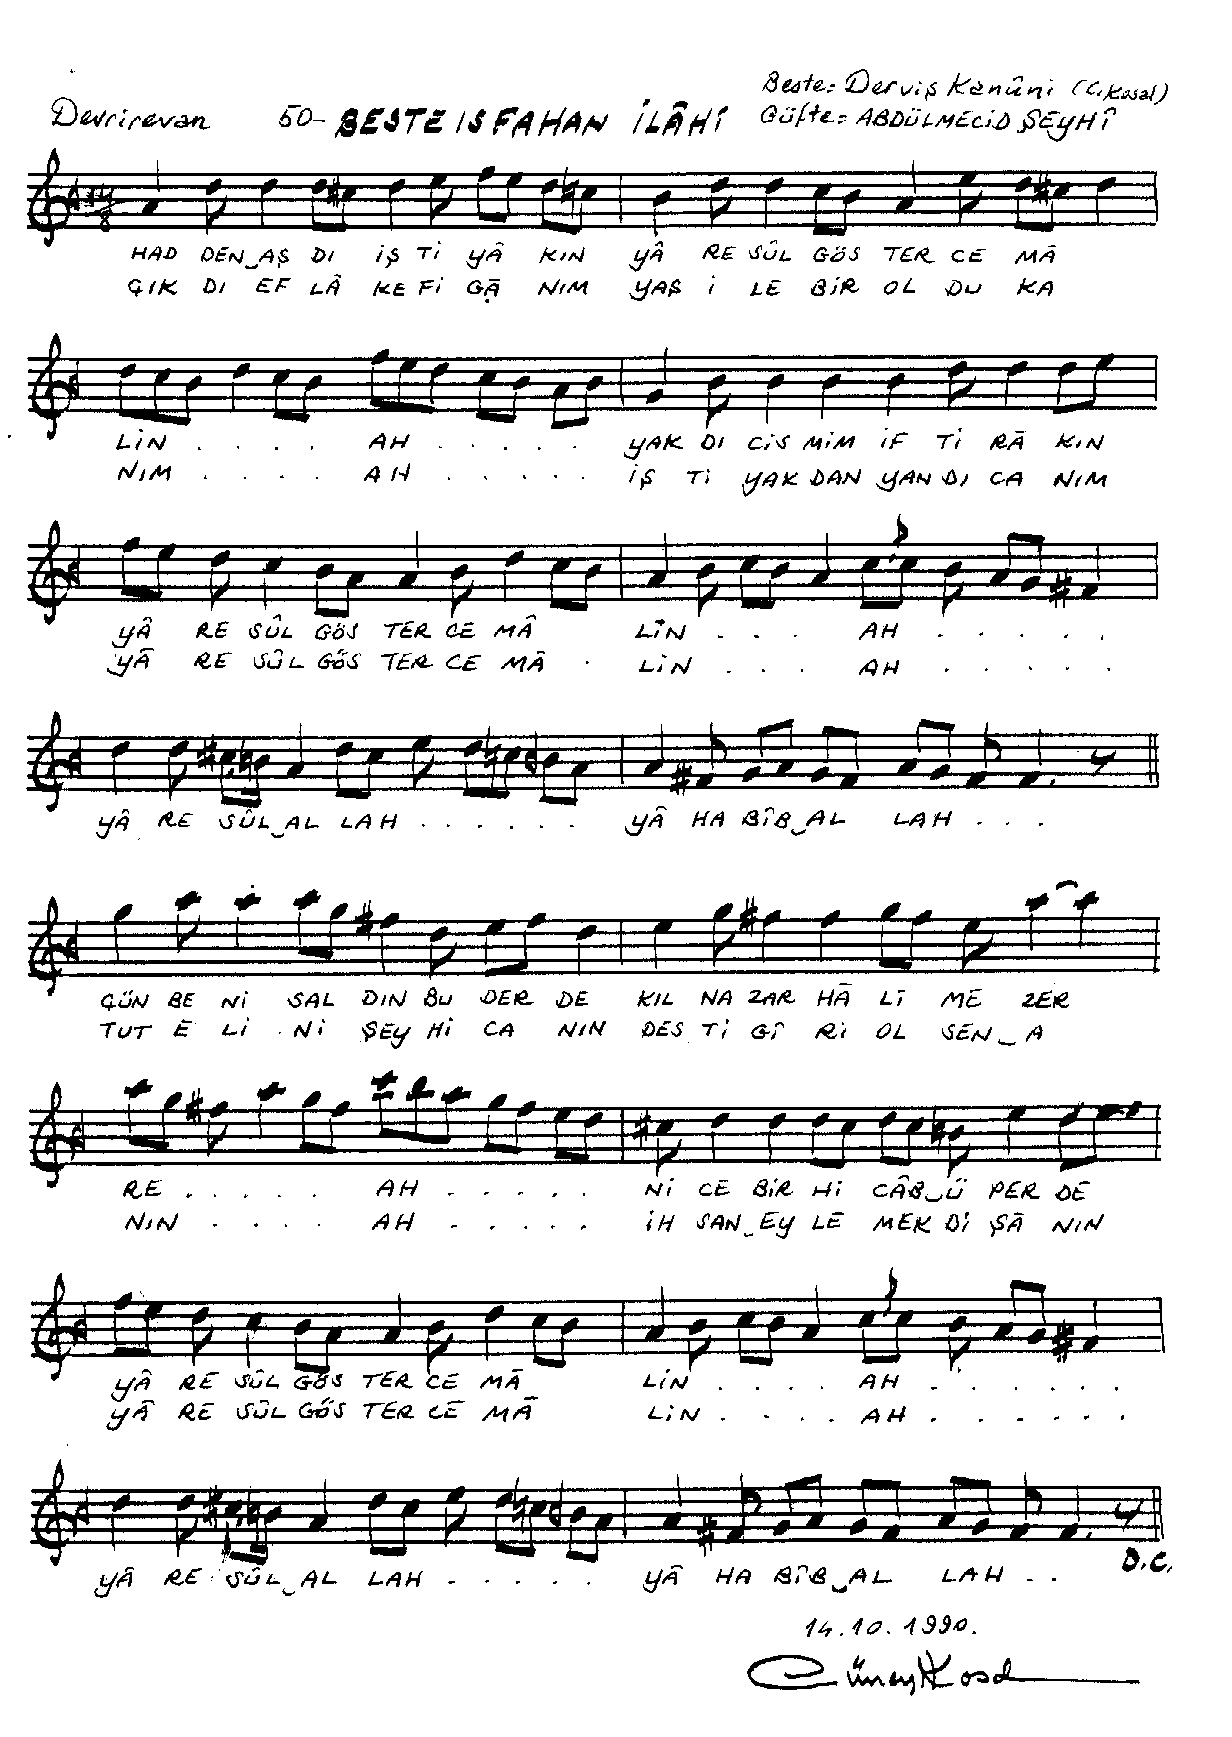 Beste: Derviş Kanûni (C. Kosal)
Devrirevan 50- BESTE ISFAHAN İLÂHİ Güfte: ABDÜLMECİD ŞEYHÎ
14
8
HAD DEN‿AŞ DI İŞ Tİ YÂ KIN YÂ RE SÛL GÖS TER CE MÂ
ÇIK DI EF LÂ KE Fİ GĀ NIM YAŞ İ LE BİR OL DU KA
LİN . . . . AH . . . . . YAK DI CİS MİM İF Tİ RĀ KIN
NIM . . . . AH . . . . . İŞ Tİ YAK DAN YAN DI CA NIM
YÂ RE SÛL GÖS TER CE MÂ LİN . . . AH . . . . .
YĀ RE SÛL GÖS TER CE MĀ . LİN . . . AH . . . . .
YÂ RE SÛL‿AL LAH . . . . . YÂ HA BÎB‿AL LAH . . .
GÜN BE Nİ SAL DIN BU DER DE KIL NA ZAR HĀ LĪ ME ZER
TUT E Lİ Nİ ŞEY Hİ CA NIN DES Tİ GÎ Rİ OL SEN‿A
RE . . . . . AH . . . . . Nİ CE BİR Hİ CÂB‿Ü PER DE
NIN . . . . AH . . . . . İH SAN‿EY LE MEK Dİ ŞĀ NIN
YÂ RE SÛL GÖS TER CE MĀ LİN . . . . AH . . . . . .
YÂ RE SÛL GÖS TER CE MĀ LİN . . . . AH . . . . . .
D.C.
YÂ RE SÛL‿AL LAH . . . . . YÂ HA BÎB‿AL LAH . .
14.10.1990.
Cüneyt Kosal